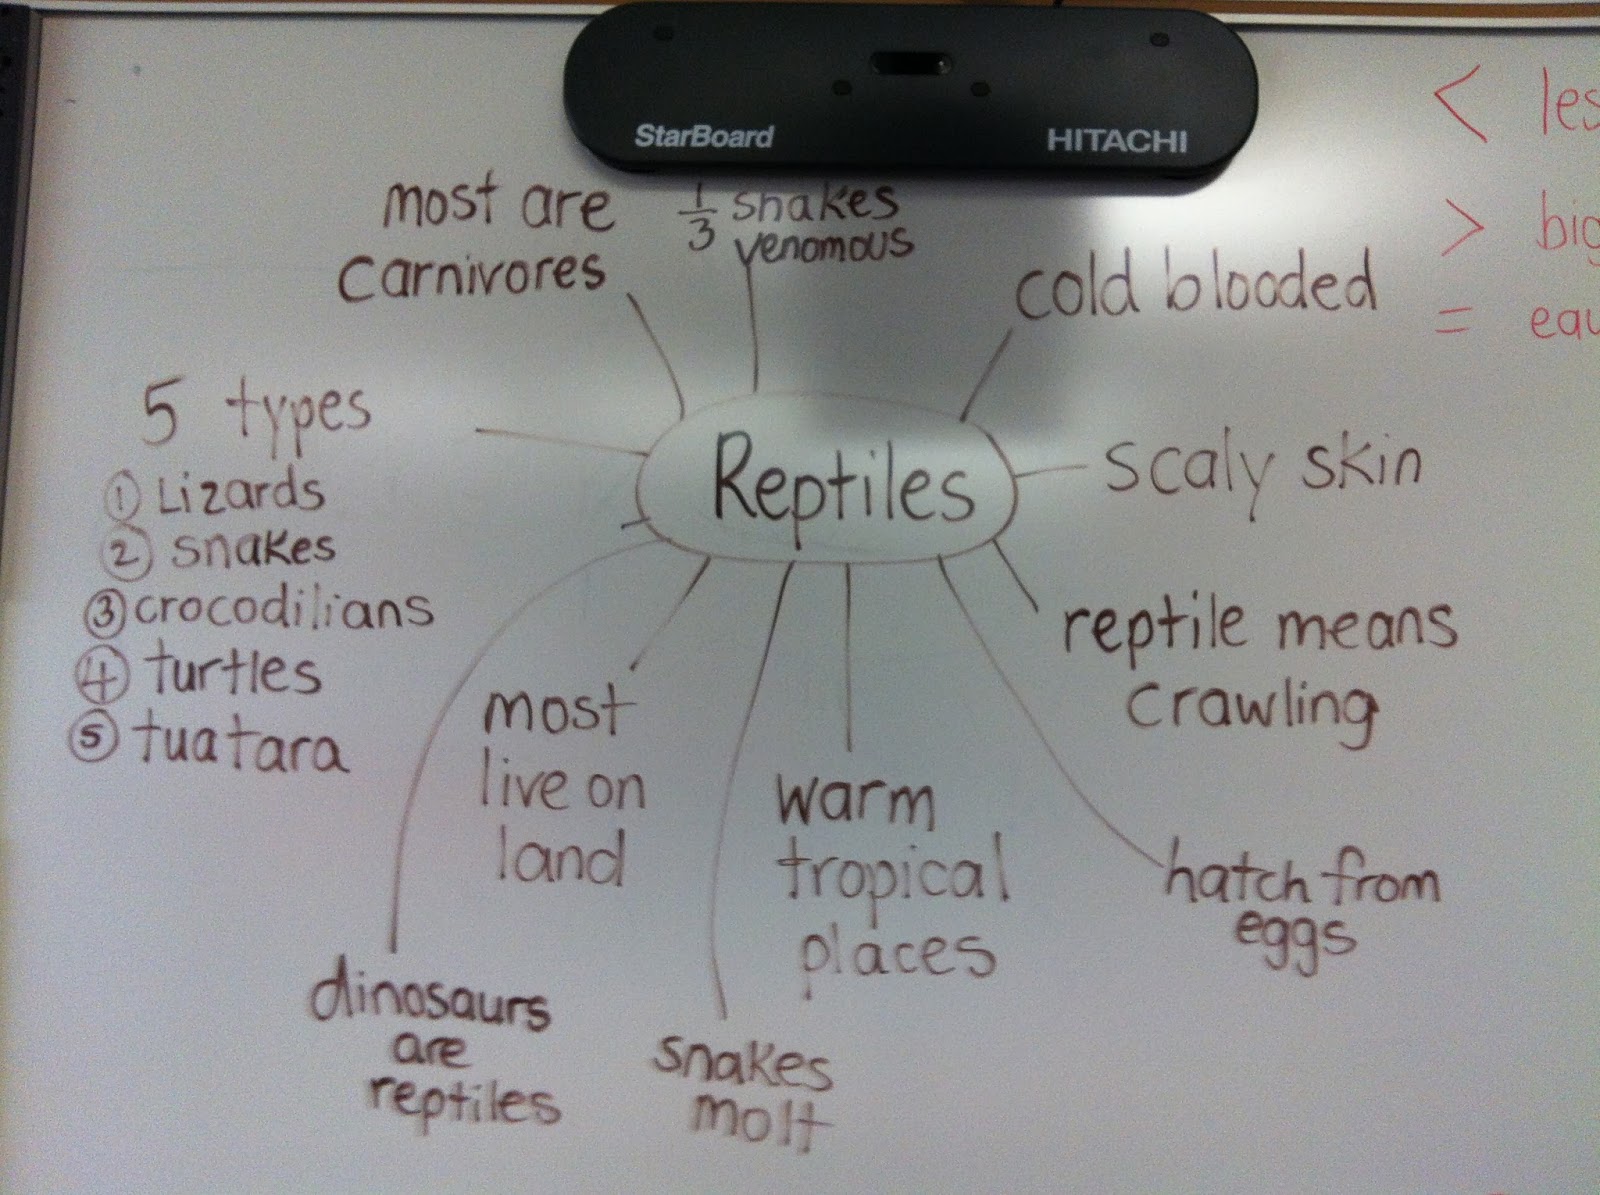 StarBoard
HITACHI
most are
carnivores
1/3 snakes
venomous
cold blooded
5 types
① Lizards
② snakes
③ crocodilians
④ turtles
⑤ tuatara
Reptiles
scaly skin
reptile means
crawling
most
live on
land
warm
tropical
places
hatch from
eggs
dinosaurs
are
reptiles
snakes
molt
< les
> big
= eau